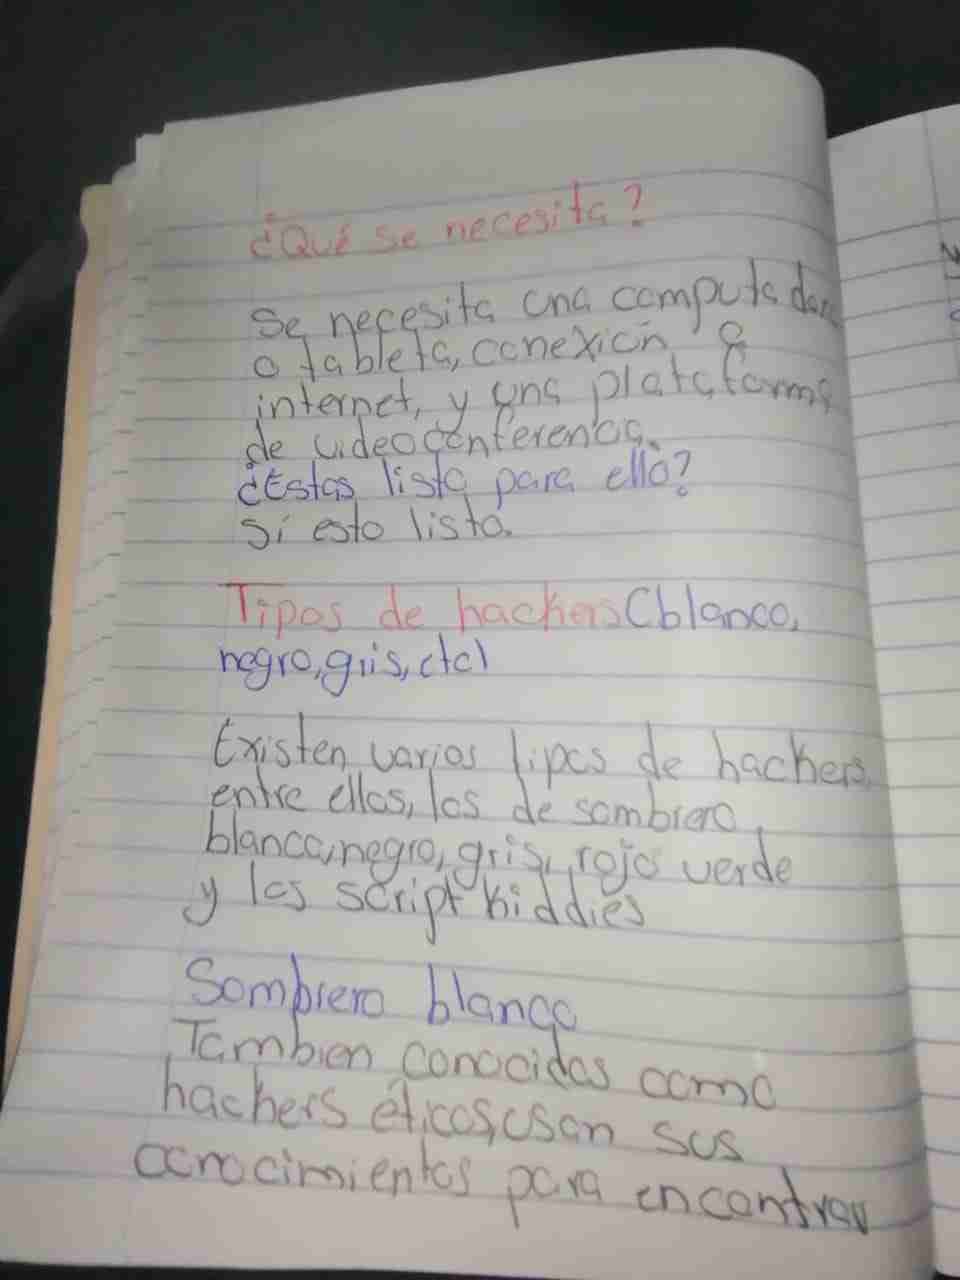 ¿Qué se necesita?
Se necesita una computadora
o tableta, conexión a
internet, y una plataforma
de videoconferencia.
¿Estas lista para ello?
Sí esto lista.
Tipos de hackers (blanco,
negro, gris, etc)
Existen varios tipos de hackers,
entre ellos, los de sombrero
blanco, negro, gris, rojo verde
y los script kiddies
Sombrero blanco
Tambien conocidos como
hackers éticos, usan sus
conocimientos para encontrar